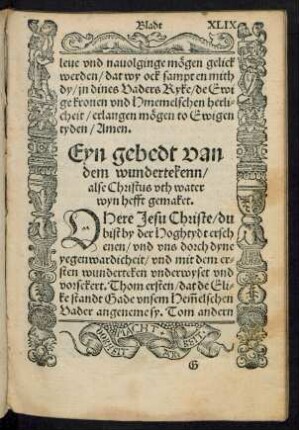 Bladt XLIX
leue vnd nauolginge mögen gelick
werden / dat wy ock sampt en mith
dy / in dines Vaders Ryke / de Ewi
ge kronen vnd Hmemelschen herli-
cheit / erlangen mögen to Ewigen
tyden / Amen.
Eyn gebedt van
dem wundertekenn /
alse Christus vth water
wyn hefft gemaket.
O Here Jesu Christe / du
bist by der Hoghtydt ersch
enen / vnd vns dorch dyne
yegenwardicheit / vnd mit dem er-
sten wunderteken vnderwyset vnd
vorsekert. Thom ersten / dat de Eli-
ke standt Gade vnsem Hem̄elschen
Vader angeneme sy. Tom andern
ACHT
G